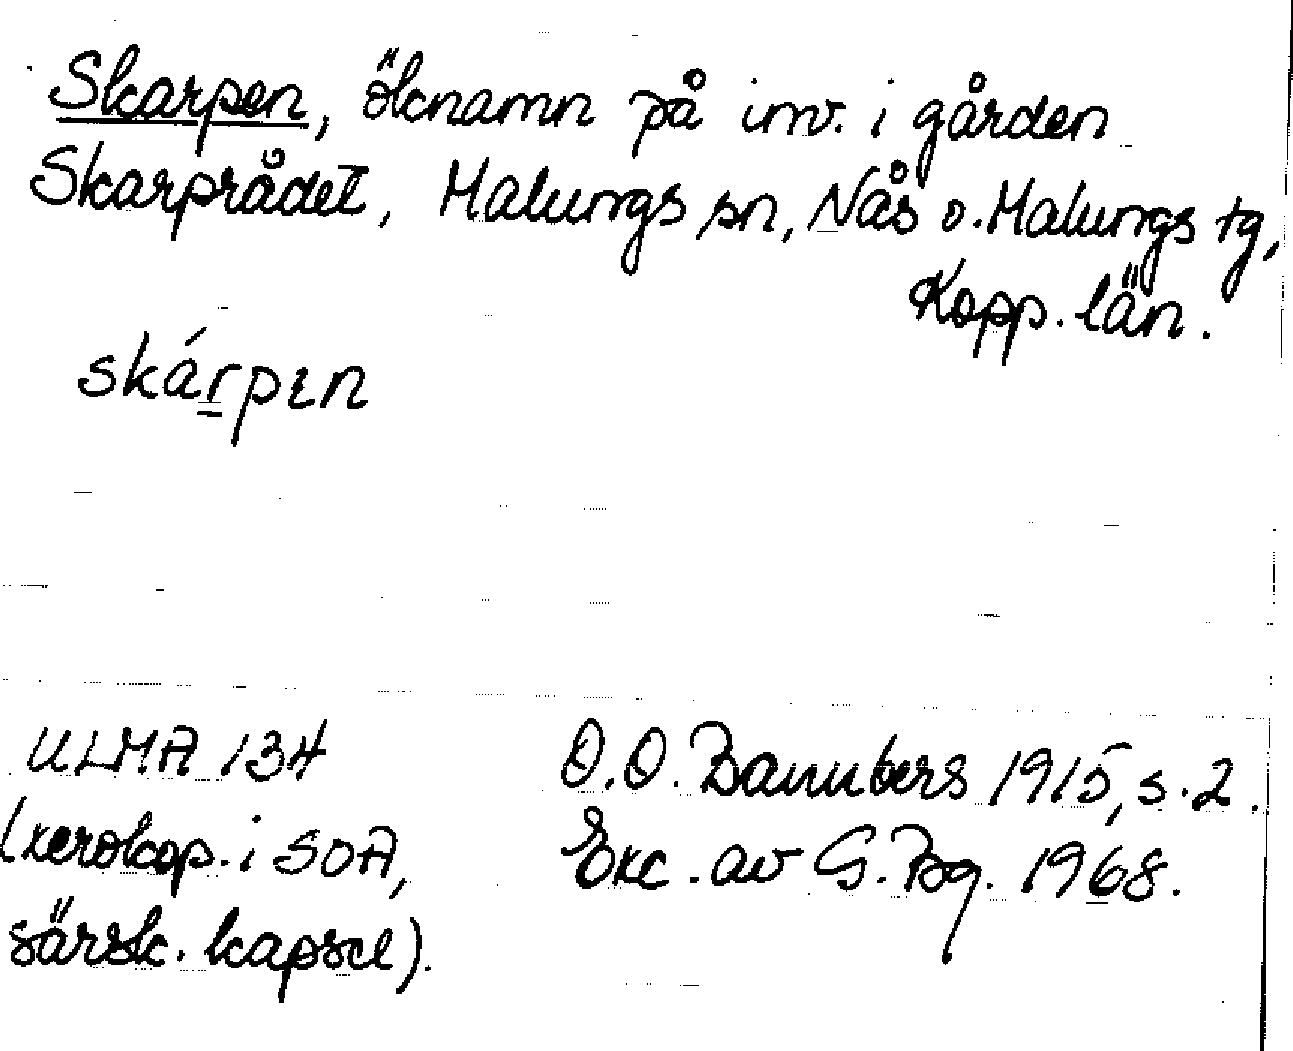 Skarpen, öknamn på inv. i gården
Skarprådet, Malungs sn, Nås o. Malungs tg,
Kopp. län.
skárpɪn
ULMA 134
(xerokop. i SOA,
särsk. kapsel).
O.O. Bannbers 1915, s. 2.
Exc. av G. Bg. 1968.